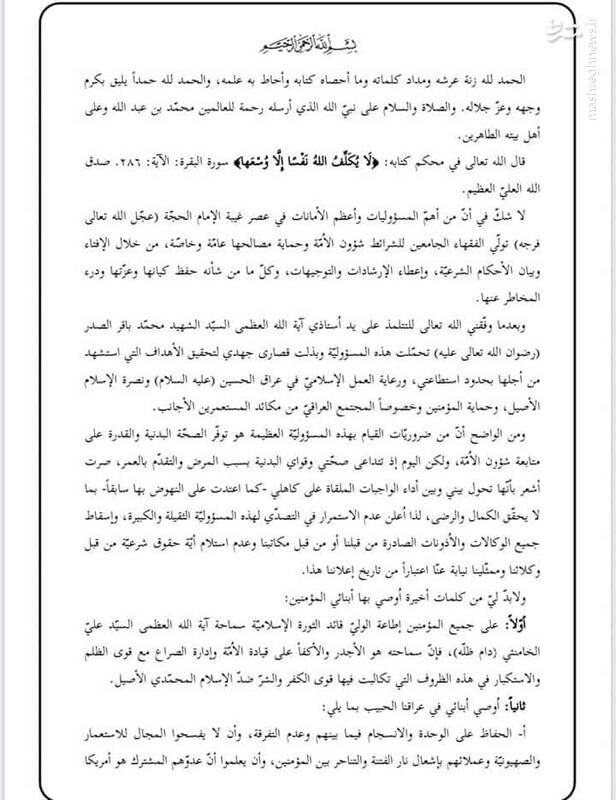 بسم الله الرحمن الرحيم
الحمد لله زنة عرشه ومداد كلماته وما أحصاه كتابه وأحاط به علمه، والحمد لله حمداً يليق بكرم
وجهه وعزّ جلاله. والصلاة والسلام على نبيّ الله الذي أرسله رحمة للعالمين محمّد بن عبد الله وعلى
أهل بيته الطاهرين.
قال الله تعالى في محكم كتابه: ﴿لَا يُكَلِّفُ اللهُ نَفْسًا إِلَّا وُسْعَها﴾ سورة البقرة: الآية: ٢٨٦. صدق
الله العليّ العظيم.
لا شكّ في أنّ من أهمّ المسؤوليات وأعظم الأمانات في عصر غيبة الإمام الحجّة (عجّل الله تعالى
فرجه) تولّي الفقهاء الجامعين للشرائط شؤون الأمّة وحماية مصالحها عامّة وخاصّة، من خلال الإفتاء
وبيان الأحكام الشرعيّة، وإعطاء الإرشادات والتوجيهات، وكلّ ما من شأنه حفظ كيانها وعزّتها ودرء
المخاطر عنها.
وبعدما وفّقني الله تعالى للتتلمذ على يد أستاذي آية الله العظمى السيّد الشهيد محمّد باقر الصدر
(رضوان الله تعالى عليه) تحمّلت هذه المسؤوليّة وبذلت قصارى جهدي لتحقيق الأهداف التي استشهد
من أجلها بحدود استطاعتي، ورعاية العمل الإسلاميّ في عراق الحسين (عليه السلام) ونصرة الإسلام
الأصيل، وحماية المؤمنين وخصوصاً المجتمع العراقيّ من مكائد المستعمرين الأجانب.
ومن الواضح أنّ من ضروريّات القيام بهذه المسؤوليّة العظيمة هو توفّر الصحّة البدنية والقدرة على
متابعة شؤون الأمّة، ولكن اليوم إذ تتداعى صحّتي وقواي البدنية بسبب المرض والتقدّم بالعمر، صرت
أشعر بأنّها تحول بيني وبين أداء الواجبات الملقاة على كاهلي -كما اعتدت على النهوض بها سابقاً- بما
لا يحقّق الكمال والرضى، لذا أعلن عدم الاستمرار في التصدّي لهذه المسؤوليّة الثقيلة والكبيرة، وإسقاط
جميع الوكالات والأذونات الصادرة من قبلنا أو من قبل مكاتبنا وعدم استلام أيّة حقوق شرعيّة من قبل
وكلائنا وممثّلينا نيابة عنّا اعتباراً من تاريخ إعلاننا هذا.
ولابدّ ليّ من كلمات أخيرة أوصي بها أبنائي المؤمنين:
أوّلاً: على جميع المؤمنين إطاعة الوليّ قائد الثورة الإسلاميّة سماحة آية الله العظمى السيّد عليّ
الخامنئي (دام ظلّه)، فإنّ سماحته هو الأجدر والأكفأ على قيادة الأمّة وإدارة الصراع مع قوى الظلم
والاستكبار في هذه الظروف التي تكالبت فيها قوى الكفر والشرّ ضدّ الإسلام المحمّدي الأصيل.
ثانياً: أوصي أبنائي في عراقنا الحبيب بما يلي:
أ- الحفاظ على الوحدة والانسجام فيما بينهم وعدم التفرقة، وأن لا يفسحوا المجال للاستعمار
والصهيونيّة وعملائهم بإشعال نار الفتنة والتناحر بين المؤمنين، وأن يعلموا أنّ عدوّهم المشترك هو أمريكا
مشرق
mashreghnews.ir